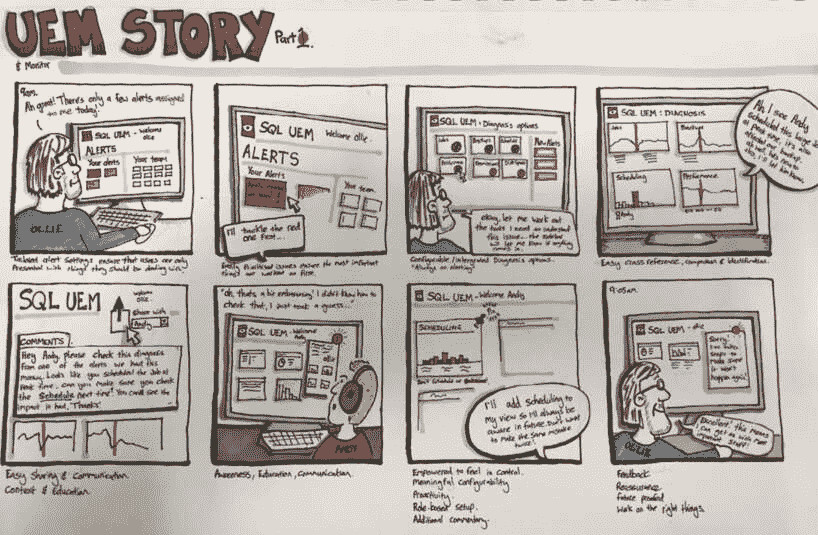 UEM STORY Part 1.
& Monitor
9am.
Ah great! There's only a few alerts assigned
to me today!
SQL UEM - Welcome
ollie
ALERTS
Your alerts
Your team
OLLIE
Tailored alert settings ensure that users are only
presented with things they should be dealing with.
SQL UEM Welcome ollie.
ALERTS
Your Alerts
Your team
I'll tackle the red
one first...
Easily prioritised issues ensure the most important
things are worked on first.
SQL UEM: Diagnosis options
Jobs
Backups
New Alerts
okay, let me work out
the tools I need to understand
this issue... the
will let me know if anything
comes in.
Configurable/intergrated Diagnosis options.
"Always on alerting"
SQL UEM: DIAGNOSIS
Jobs
Backups
Scheduling
Performance
Andy
Ah I see Andy
scheduled this large job
at peak time, it's
affected our
Easy cross reference, comparison & identification.
SQL UEM
welcome
ollie.
Share with
Andy
COMMENTS
Hey Andy, please check this diagnosis
from one of the alerts we had this
morning. Looks like you scheduled the job at
peak time. can you make sure you check
the Schedule next time? You can see the
impact it had, Thanks
Easy Sharing & Communication.
Context & Education
"oh, that's a bit embarrassing! I didn't know how to
check that, I just took a guess..."
SQL UEM - Welcome
Andy
ANDY
Awareness, Education, communication.
SQL UEM - Welcome Andy
SCHEDULING
I'll add scheduling to
my view so I'll always be
aware in future. Don't want
to make the same mistake
twice!
Empowered to feel in control.
Meaningful configurability
Proactivity.
Role-based setup.
Additional commentary.
9:05am.
SQL UEM - ollie
Sorry!
I've taken
steps to
make sure
it won't
happen again!
Excellent! this means
I can get on with more
important stuff!
OLLIE
Feedback
Reassurance
Future proofed
Work on the right things.